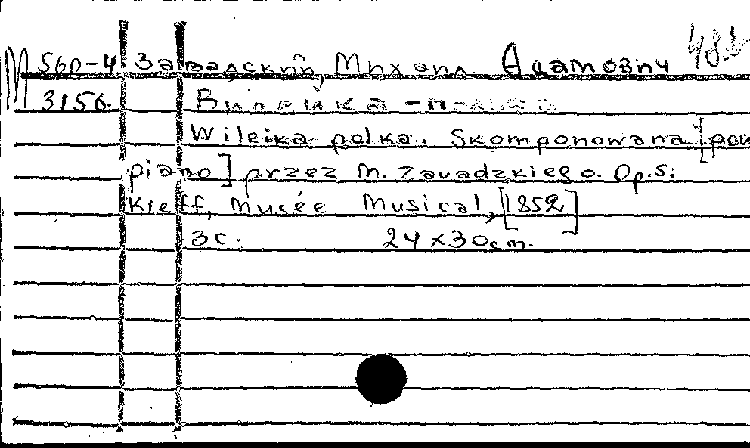 М 560-4 Завадский, Михаил Адамович
3156
Wileika polka. Skomponowana [pour
piano] przez M. Zawadzkiego. Op. 5.
Kieff, Musée Musical, [1852]
3 с. 24 x 30 cm.